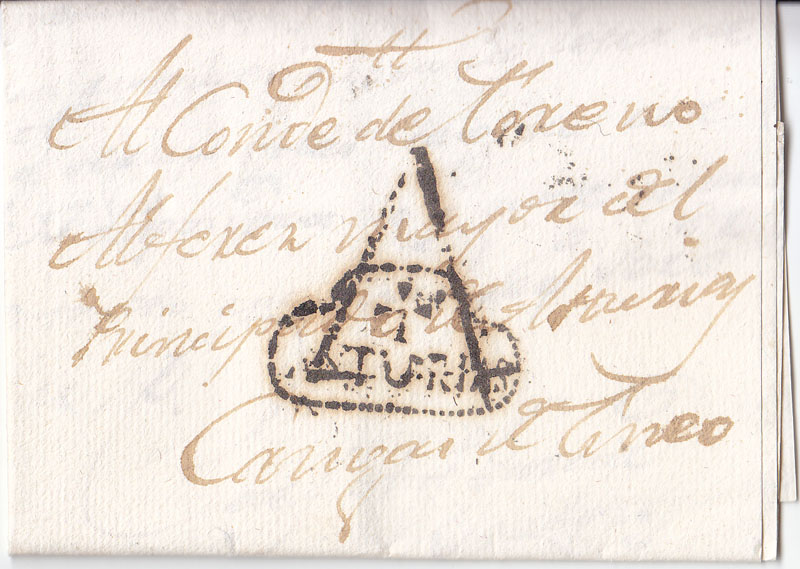 Al Conde de Toreno
Alferez mayor del
Principado de Asturias
ATURIAS
Cangas de Tineo